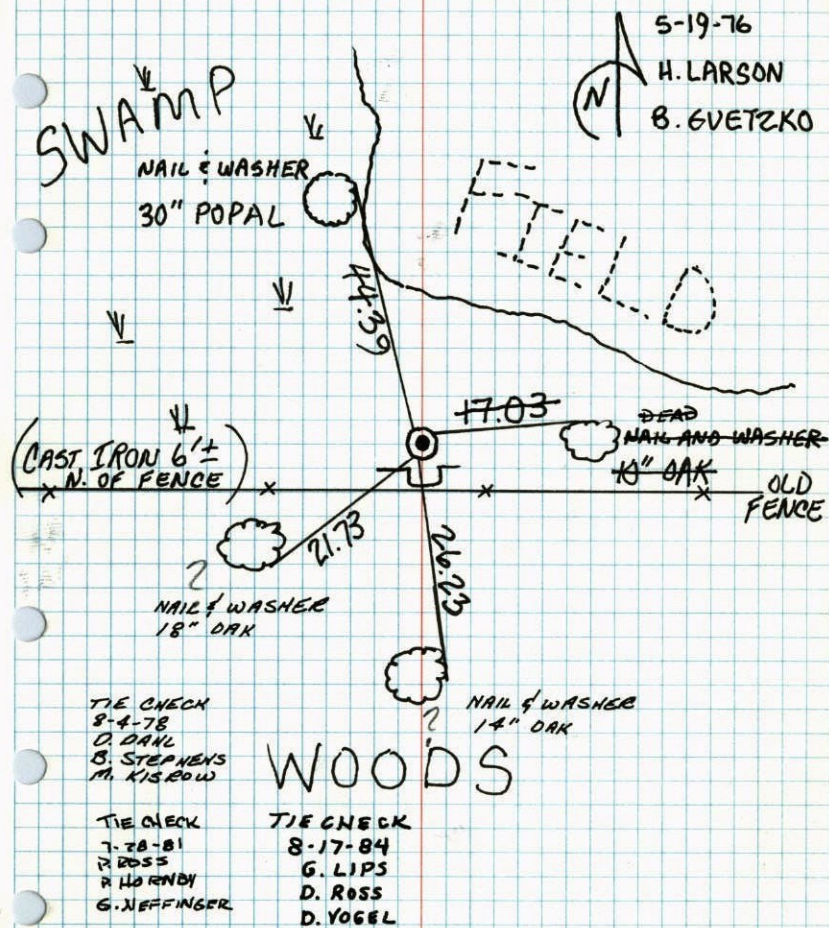 5-19-76
H. LARSON
B. GVETZKO
N
SWAMP
NAIL & WASHER
30" POPAL
FIELD
44.39
17.03
DEAD
NAIL AND WASHER
10" OAK
(CAST IRON 6'±
N. OF FENCE)
OLD
FENCE
21.73
26.23
?
NAIL & WASHER
18" OAK
?
NAIL & WASHER
14" OAK
WOODS
TIE CHECK
8-4-78
D. DAHL
B. STEPHENS
M. KISROW
TIE CHECK
7-28-81
P. ROSS
P. HORNBY
G. NEFFINGER
TIE CHECK
8-17-84
G. LIPS
D. ROSS
D. VOGEL